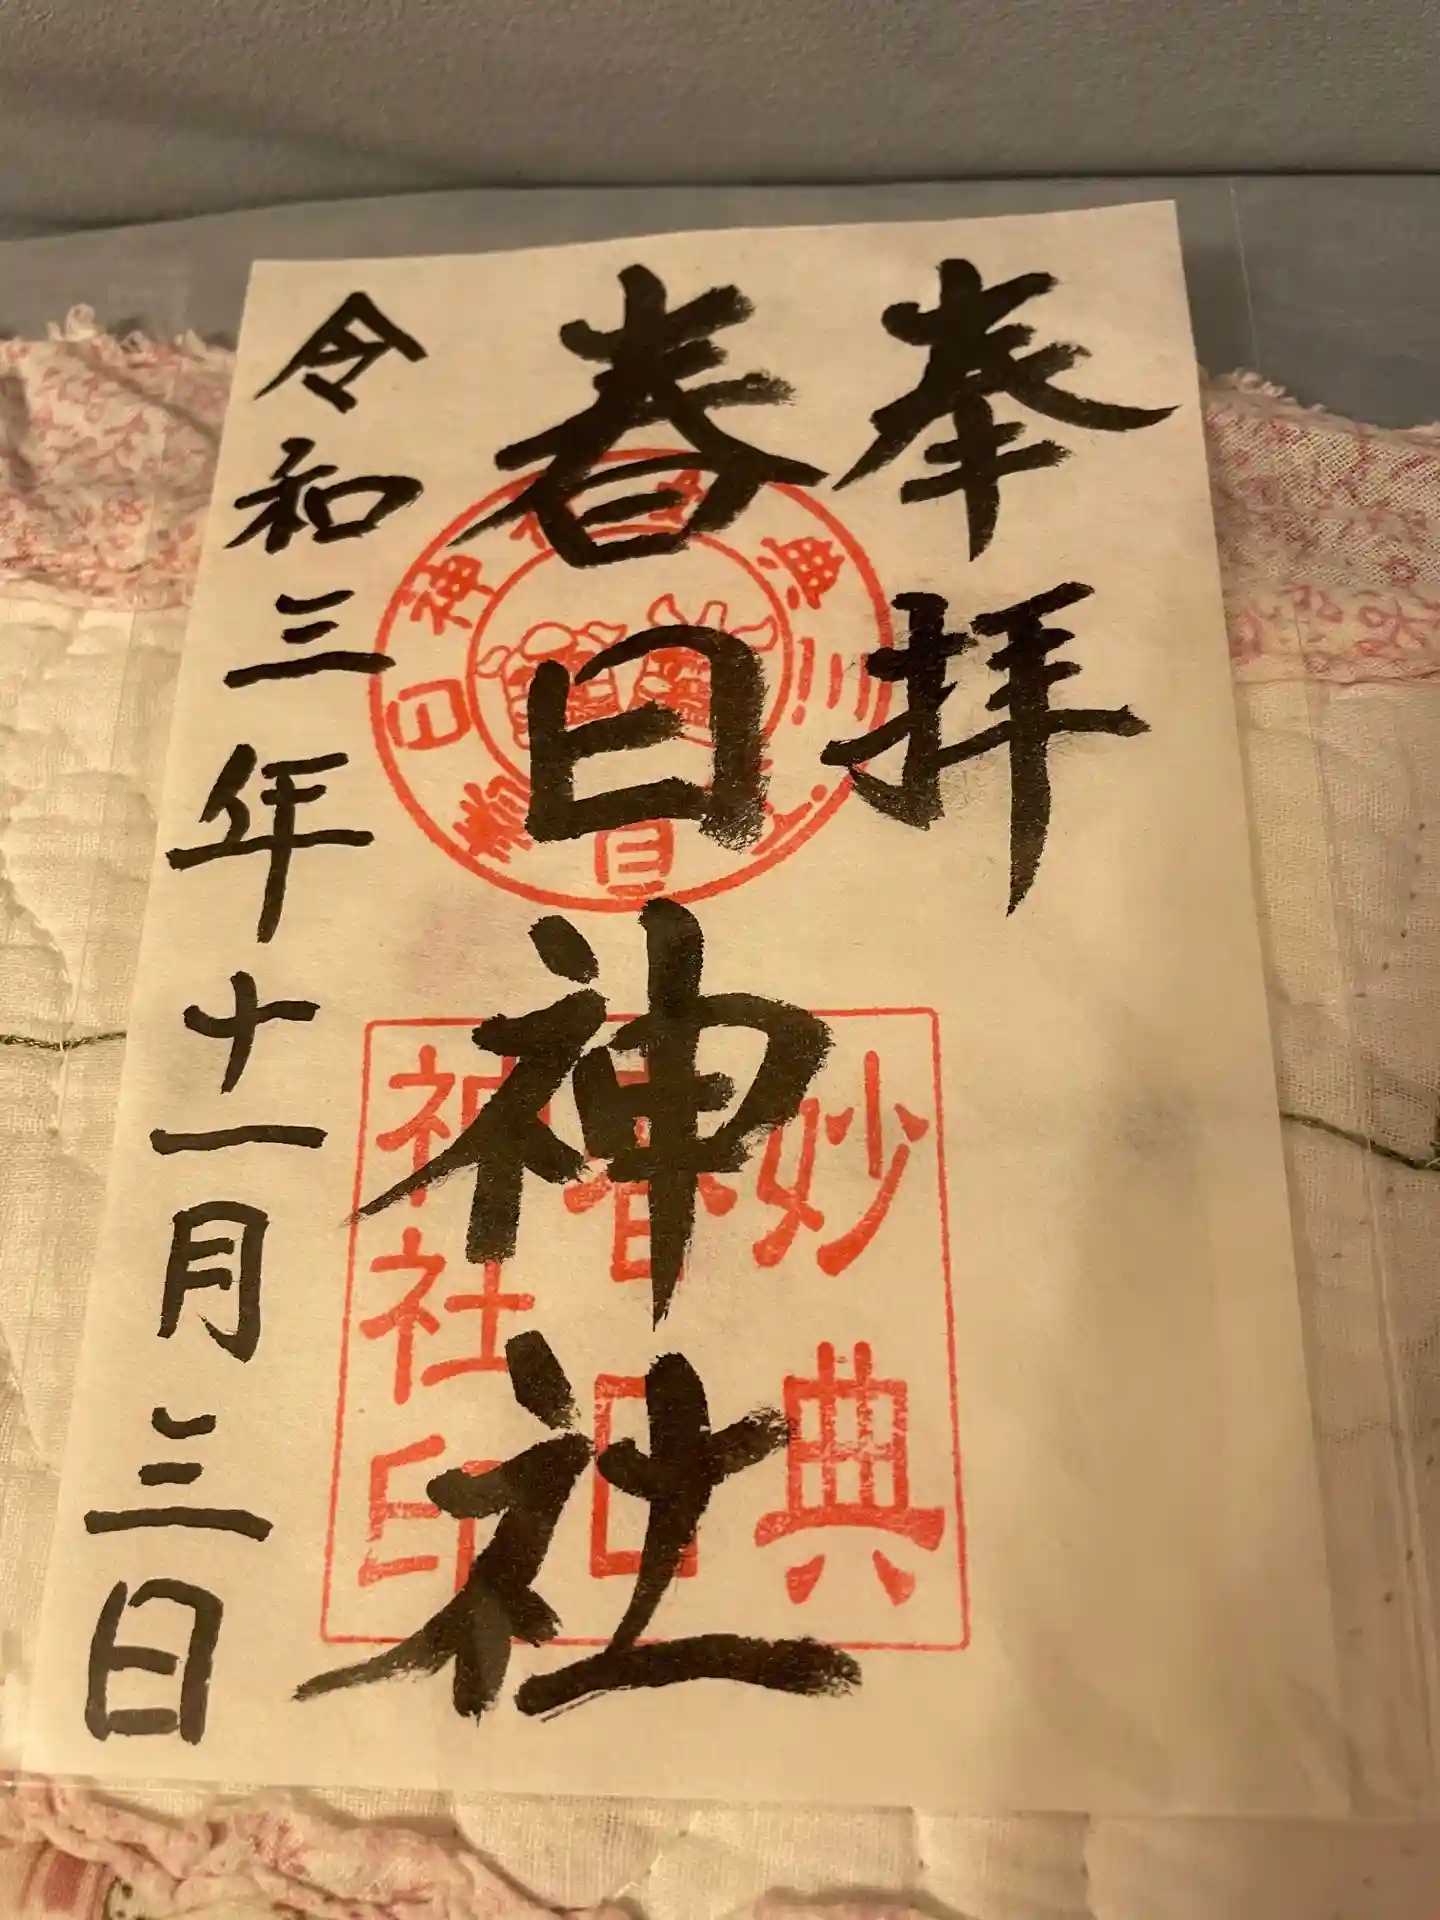 奉拝
春日神社
令和三年十一月三日
妙典
春日
神社印